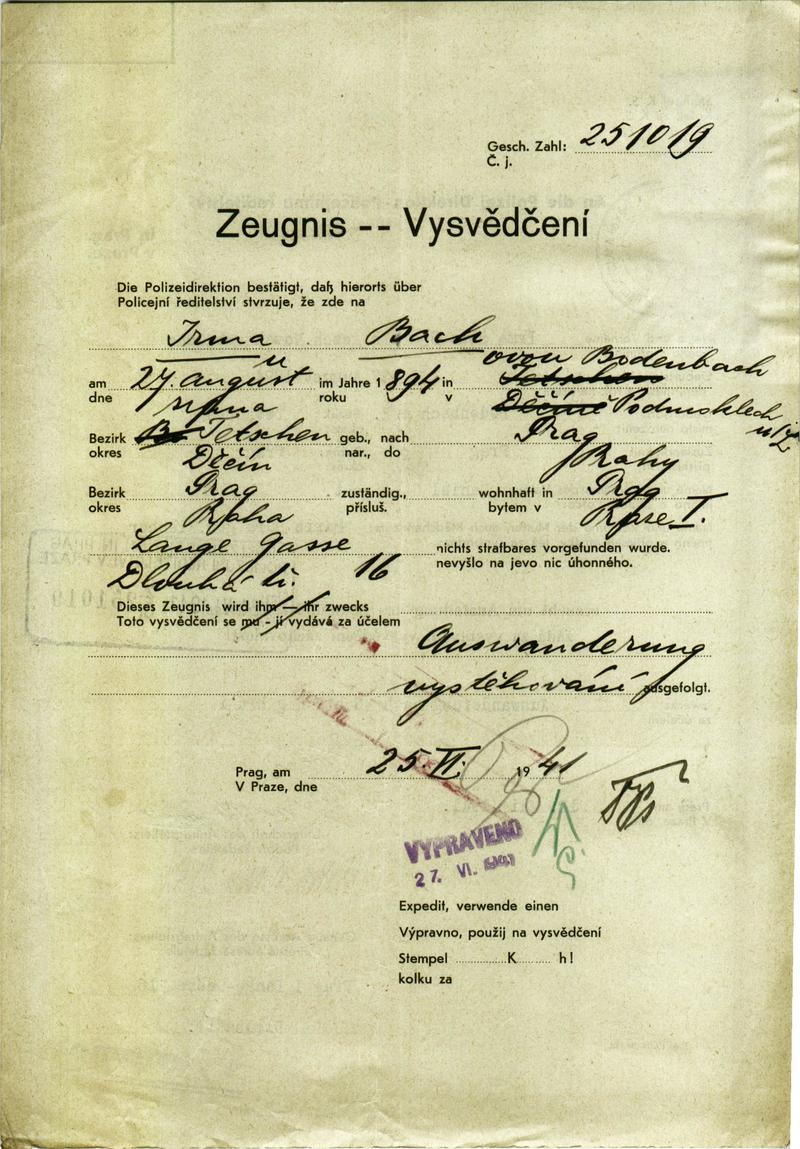 Gesch. Zahl: 251019
Č. j.
Zeugnis -- Vysvědčení
Die Polizeidirektion bestätigt, daß hierorts über
Policejní ředitelství stvrzuje, že zde na
Irma Bach
ovou Bodenbach
am 27. august im Jahre 1894 in Tetschen
dne srpna roku v Děčíně Podmoklech
Bezirk Tetschen geb., nach Prag
okres Děčín nar., do Prahy
Bezirk Prag zuständig., wohnhaft in Prag
okres Praha přísluš. bytem v Praze I.
Lange Gasse nichts strafbares vorgefunden wurde.
Dlouhá tř. 16 nevyšlo na jevo nic úhonného.
Dieses Zeugnis wird ihm — ihr zwecks
Toto vysvědčení se mu - jí vydává za účelem
Auswanderung
vystěhování ausgefolgt.
Prag, am 25. VI. 1941
V Praze, dne
VYPRAVENO
27. VI. 1941
Expedit, verwende einen
Výpravno, použij na vysvědčení
Stempel ..........K........ h!
kolku za